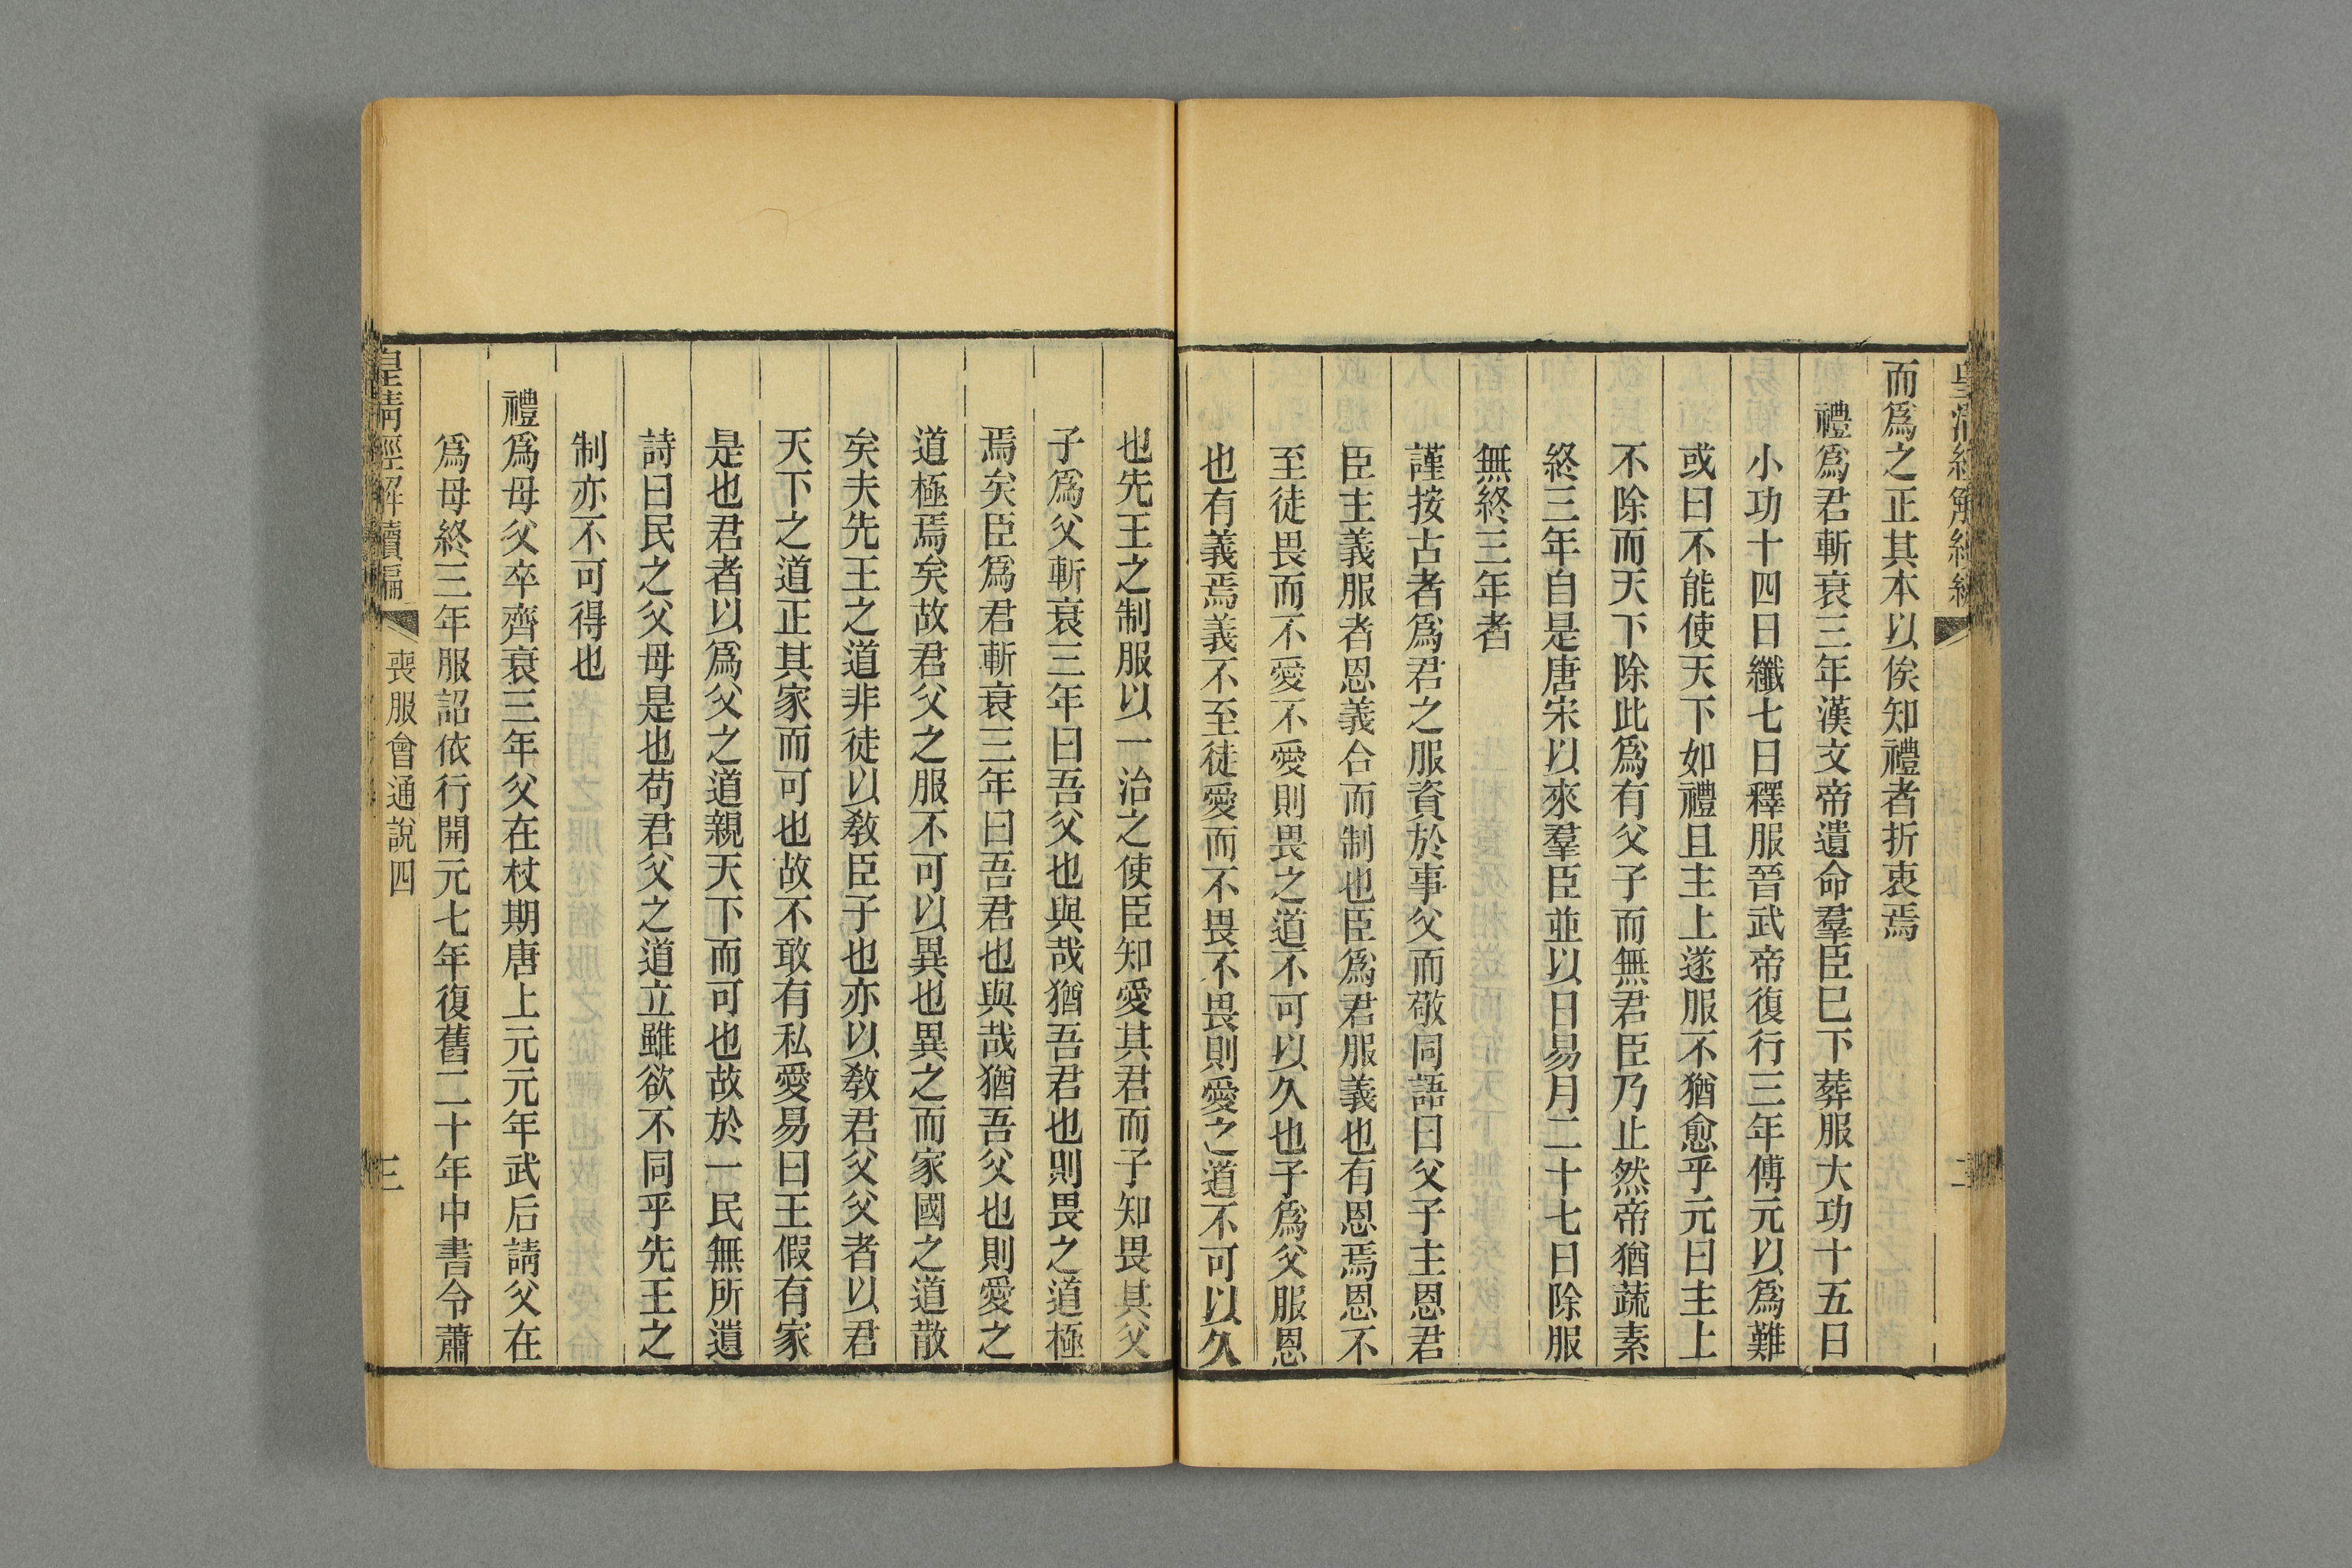 而爲之正其本以俟知禮者折衷焉
禮爲君斬衰三年漢文帝遺命羣臣巳下葬服大功十五日
小功十四日纖七日釋服晉武帝復行三年傅元以爲難
或曰不能使天下如禮且主上遂服不猶愈乎元曰主上
不除而天下除此爲有父子而無君臣乃止然帝猶蔬素
終三年自是唐宋以來羣臣並以日易月二十七日除服
無終三年者
謹按古者爲君之服資於事父而敬同語曰父子主恩君
臣主義服者恩義合而制也臣爲君服義也有恩焉恩不
至徒畏而不愛不愛則畏之道不可以久也子爲父服恩
也有義焉義不至徒愛而不畏不畏則愛之道不可以久
也先王之制服以一治之使臣知愛其君而子知畏其父
子爲父斬衰三年曰吾父也與哉猶吾君也則畏之道極
焉矣臣爲君斬衰三年曰吾君也與哉猶吾父也則愛之
道極焉矣故君父之服不可以異也異之而家國之道散
矣夫先王之道非徒以教臣子也亦以教君父父者以君
天下之道正其家而可也故不敢有私愛易曰王假有家
是也君者以爲父之道親天下而可也故於一民無所遺
詩曰民之父母是也苟君父之道立雖欲不同乎先王之
制亦不可得也
禮爲母父卒齊衰三年父在杖期唐上元元年武后請父在
爲母終三年服詔依行開元七年復舊二十年中書令蕭
皇淸經解續編 喪服會通說四 三